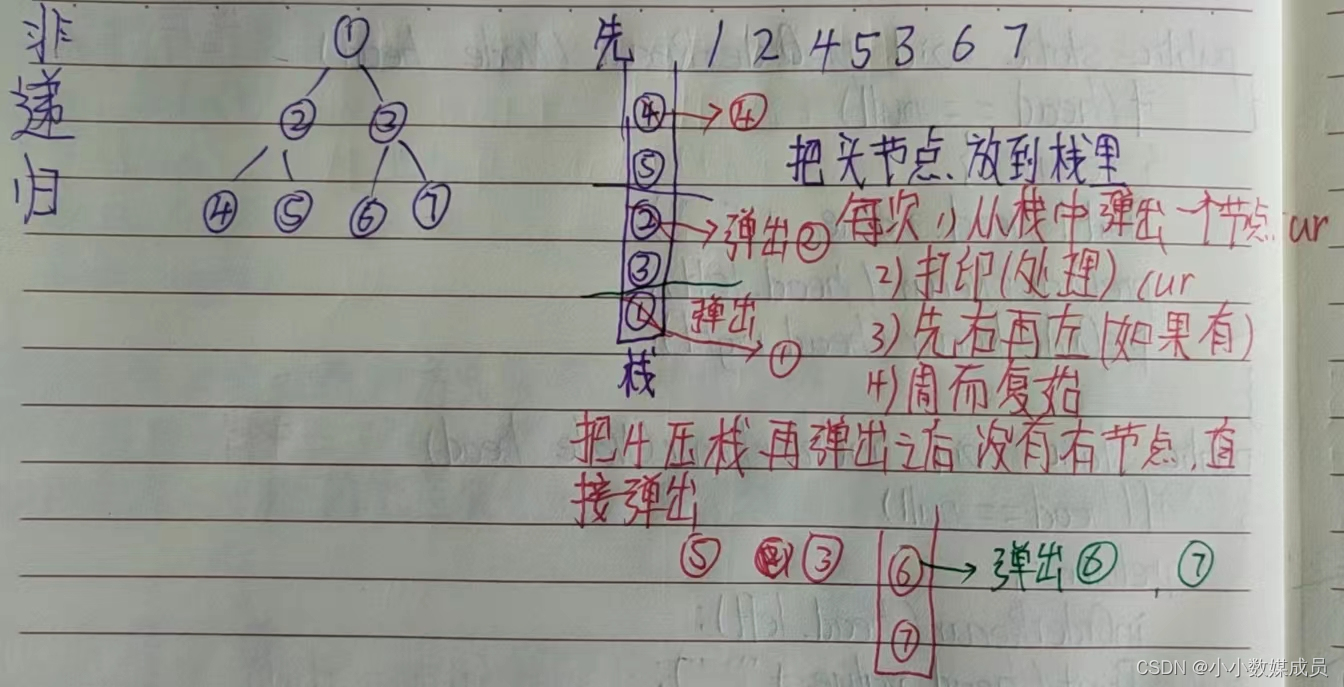 非递归
①
② ③
④ ⑤ ⑥ ⑦
先 1 2 4 5 3 6 7
④ → ④
⑤
② → 弹出②
③
① 弹出 → ①
栈
把头节点放到栈里
每次 1) 从栈中弹出一个节点 cur
2) 打印(处理) cur
3) 先右再左(如果有)
4) 周而复始
把4压栈再弹出之后没有右节点,直
接弹出
⑤ ③
⑥ → 弹出⑥ , ⑦
⑦
CSDN @小小数媒成员